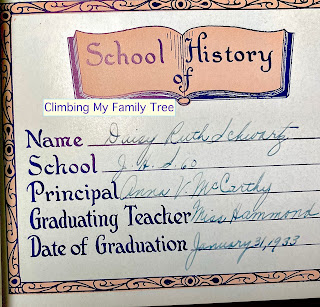 School History
of
Climbing My Family Tree
Name Daisy Ruth Schwartz
School J. H. S. 60
Principal Anna V. McCarthy
Graduating Teacher Miss Hammond
Date of Graduation January 31, 1933